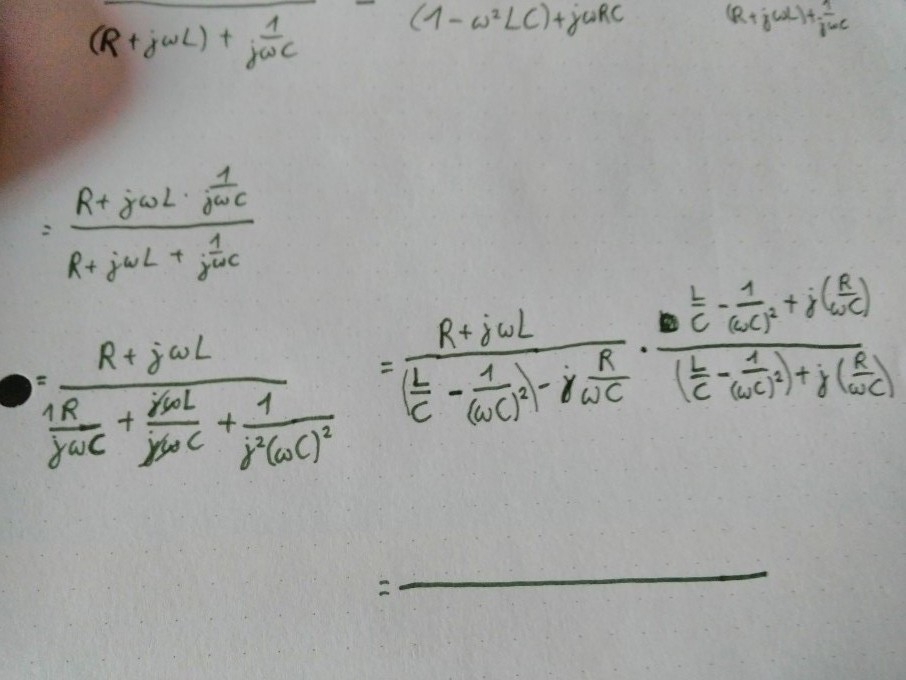 (R + jωL) + 1/jωC = (1 - ω²LC) + jωRC (R + jωL) + 1/jωC
= (R + jωL · 1/jωC) / (R + jωL + 1/jωC)
= (R + jωL) / (1R/jωC + jωL/jωC + 1/j²(ωC)²)
= (R + jωL) / ((L/C - 1/(ωC)²) - j R/ωC) · (L/C - 1/(ωC)² + j(R/ωC)) / ((L/C - 1/(ωC)²) + j(R/ωC))
=